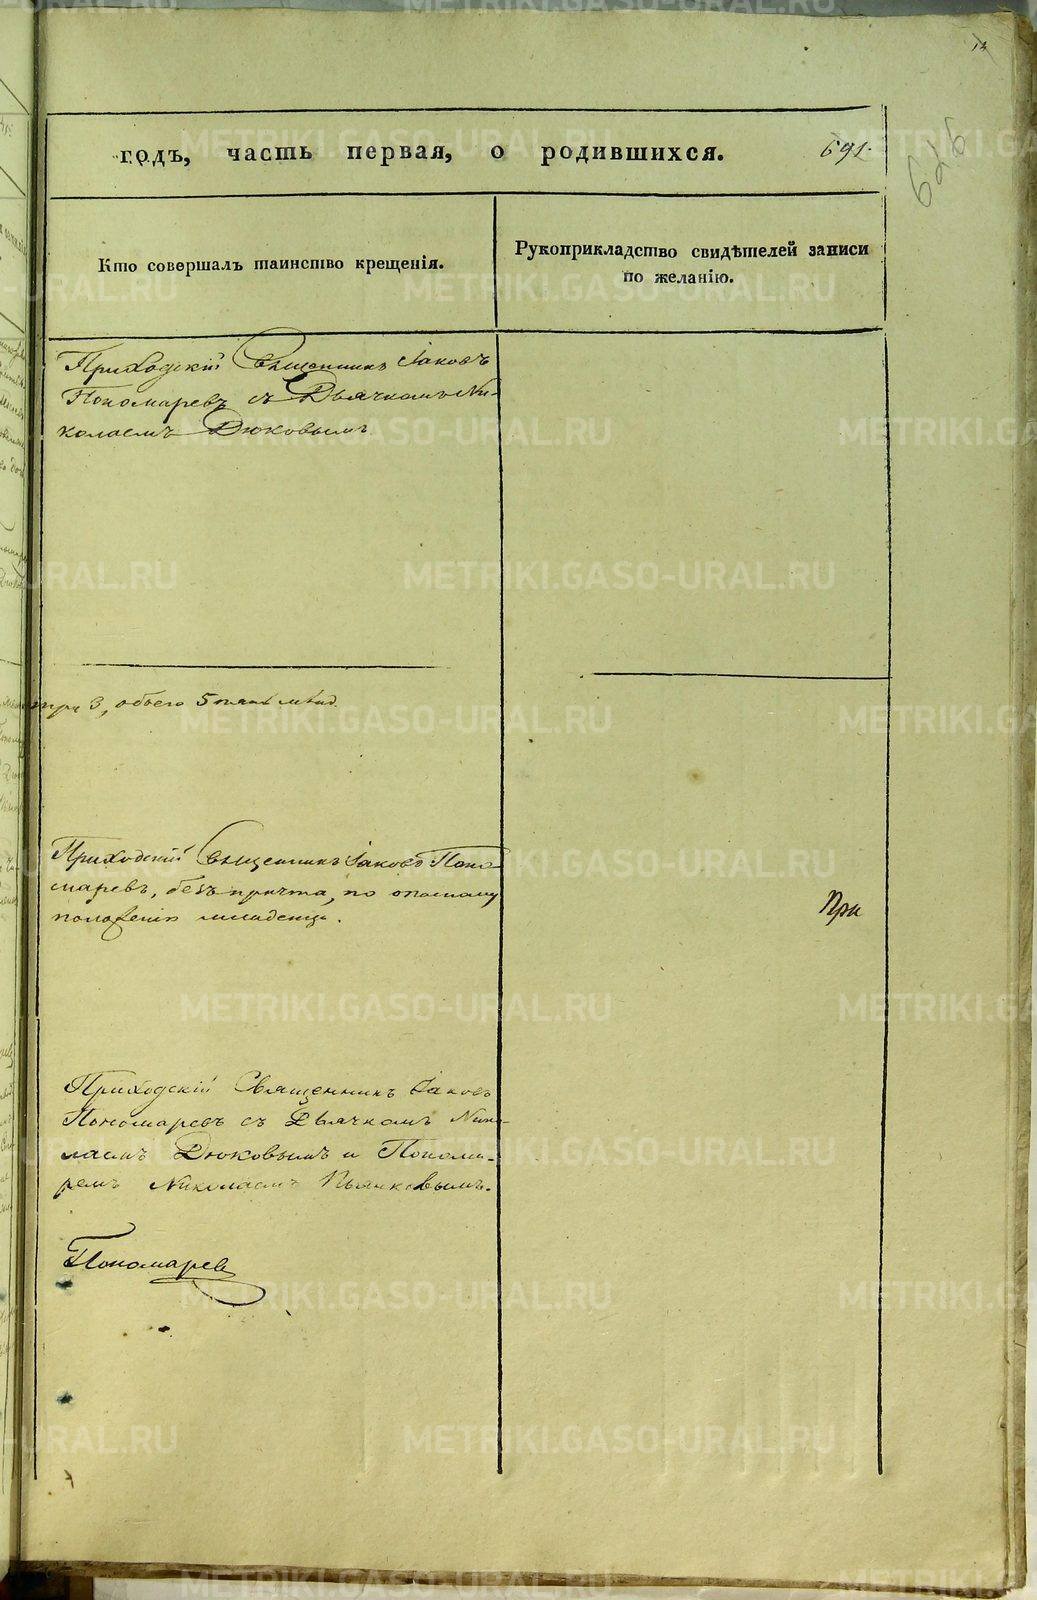 13
годъ, часть первая, о родившихся. 691.
626
Кто совершалъ таинство крещенія.
Рукоприкладство свидѣтелей записи
по желанію.
Приходскій Священникъ Іаковъ
Пономаревъ съ Дьячкомъ Ни-
колаемъ Дюковымъ
3, обоего 5
Приходскій Священникъ Іаковъ Поно-
маревъ, безъ причта, по опасному
положенію младенца.
При
Приходскій Священникъ Іаковъ
Пономаревъ съ Дьячкомъ Нико-
лаемъ Дюковымъ и Понома-
ремъ Николаемъ
Пономаревъ
METRIKI.GASO-URAL.RU